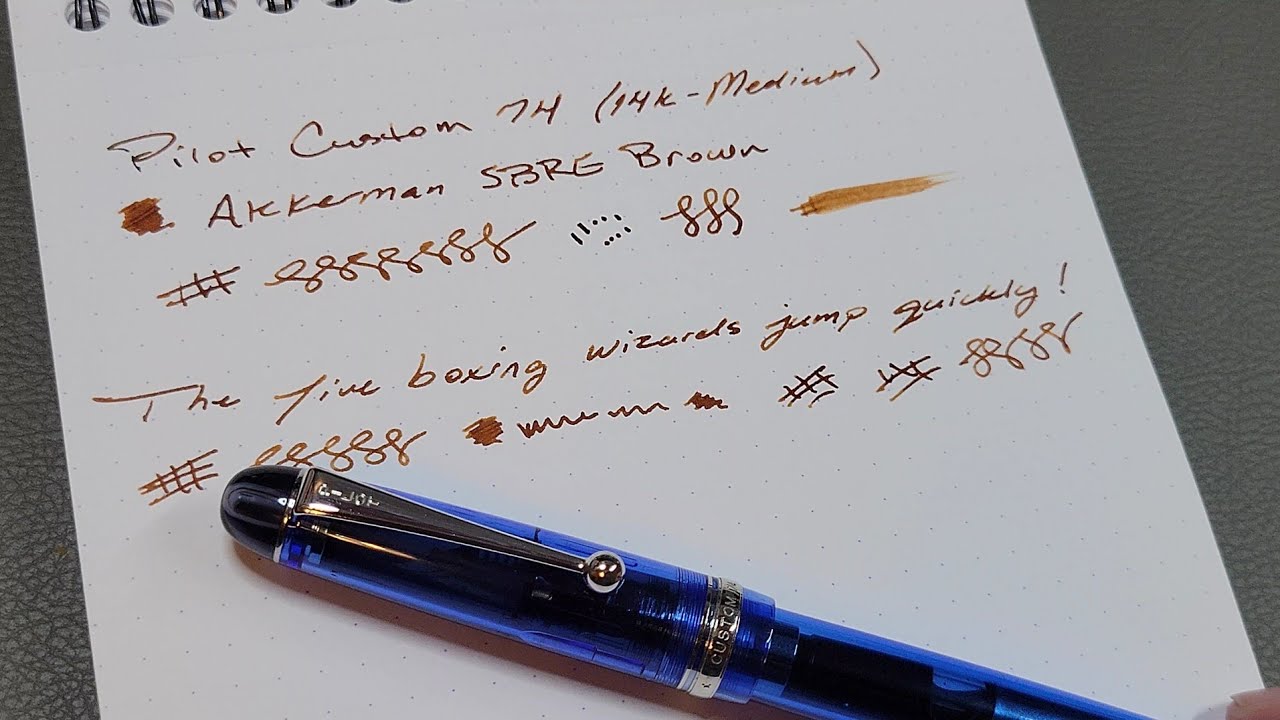 Pilot Custom 74 (14k-Medium)
Akkerman SBRE Brown
The five boxing wizards jump quickly!
PILOT
CUSTOM